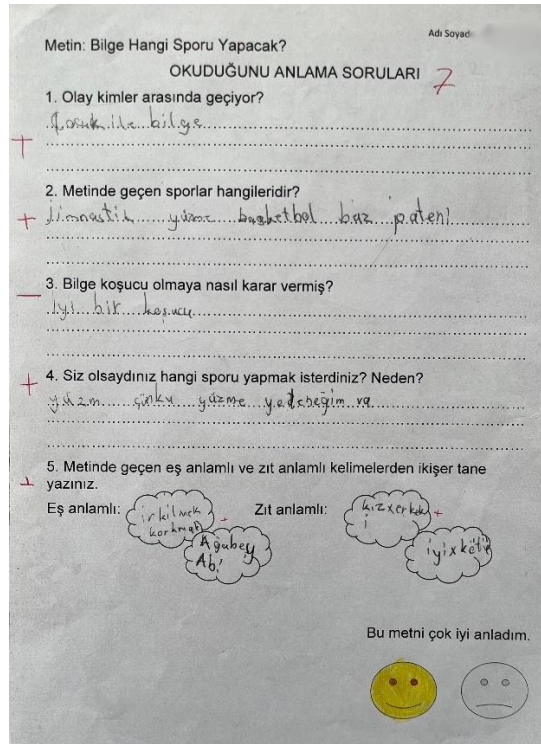 Adı Soyad
Metin: Bilge Hangi Sporu Yapacak?
OKUDUĞUNU ANLAMA SORULARI 7
1. Olay kimler arasında geçiyor?
ile bilge
+
2. Metinde geçen sporlar hangileridir?
+ jimnastik yüzme basketbol buz pateni
3. Bilge koşucu olmaya nasıl karar vermiş?
— iyi bir koşucu
+ 4. Siz olsaydınız hangi sporu yapmak isterdiniz? Neden?
yüzm çünkü yüzme yeteneğim va
5. Metinde geçen eş anlamlı ve zıt anlamlı kelimelerden ikişer tane
yazınız.
Eş anlamlı: irkilmek korkmak Zıt anlamlı: kızxerkek +
Ağabey Abi iyixkötü
Bu metni çok iyi anladım.